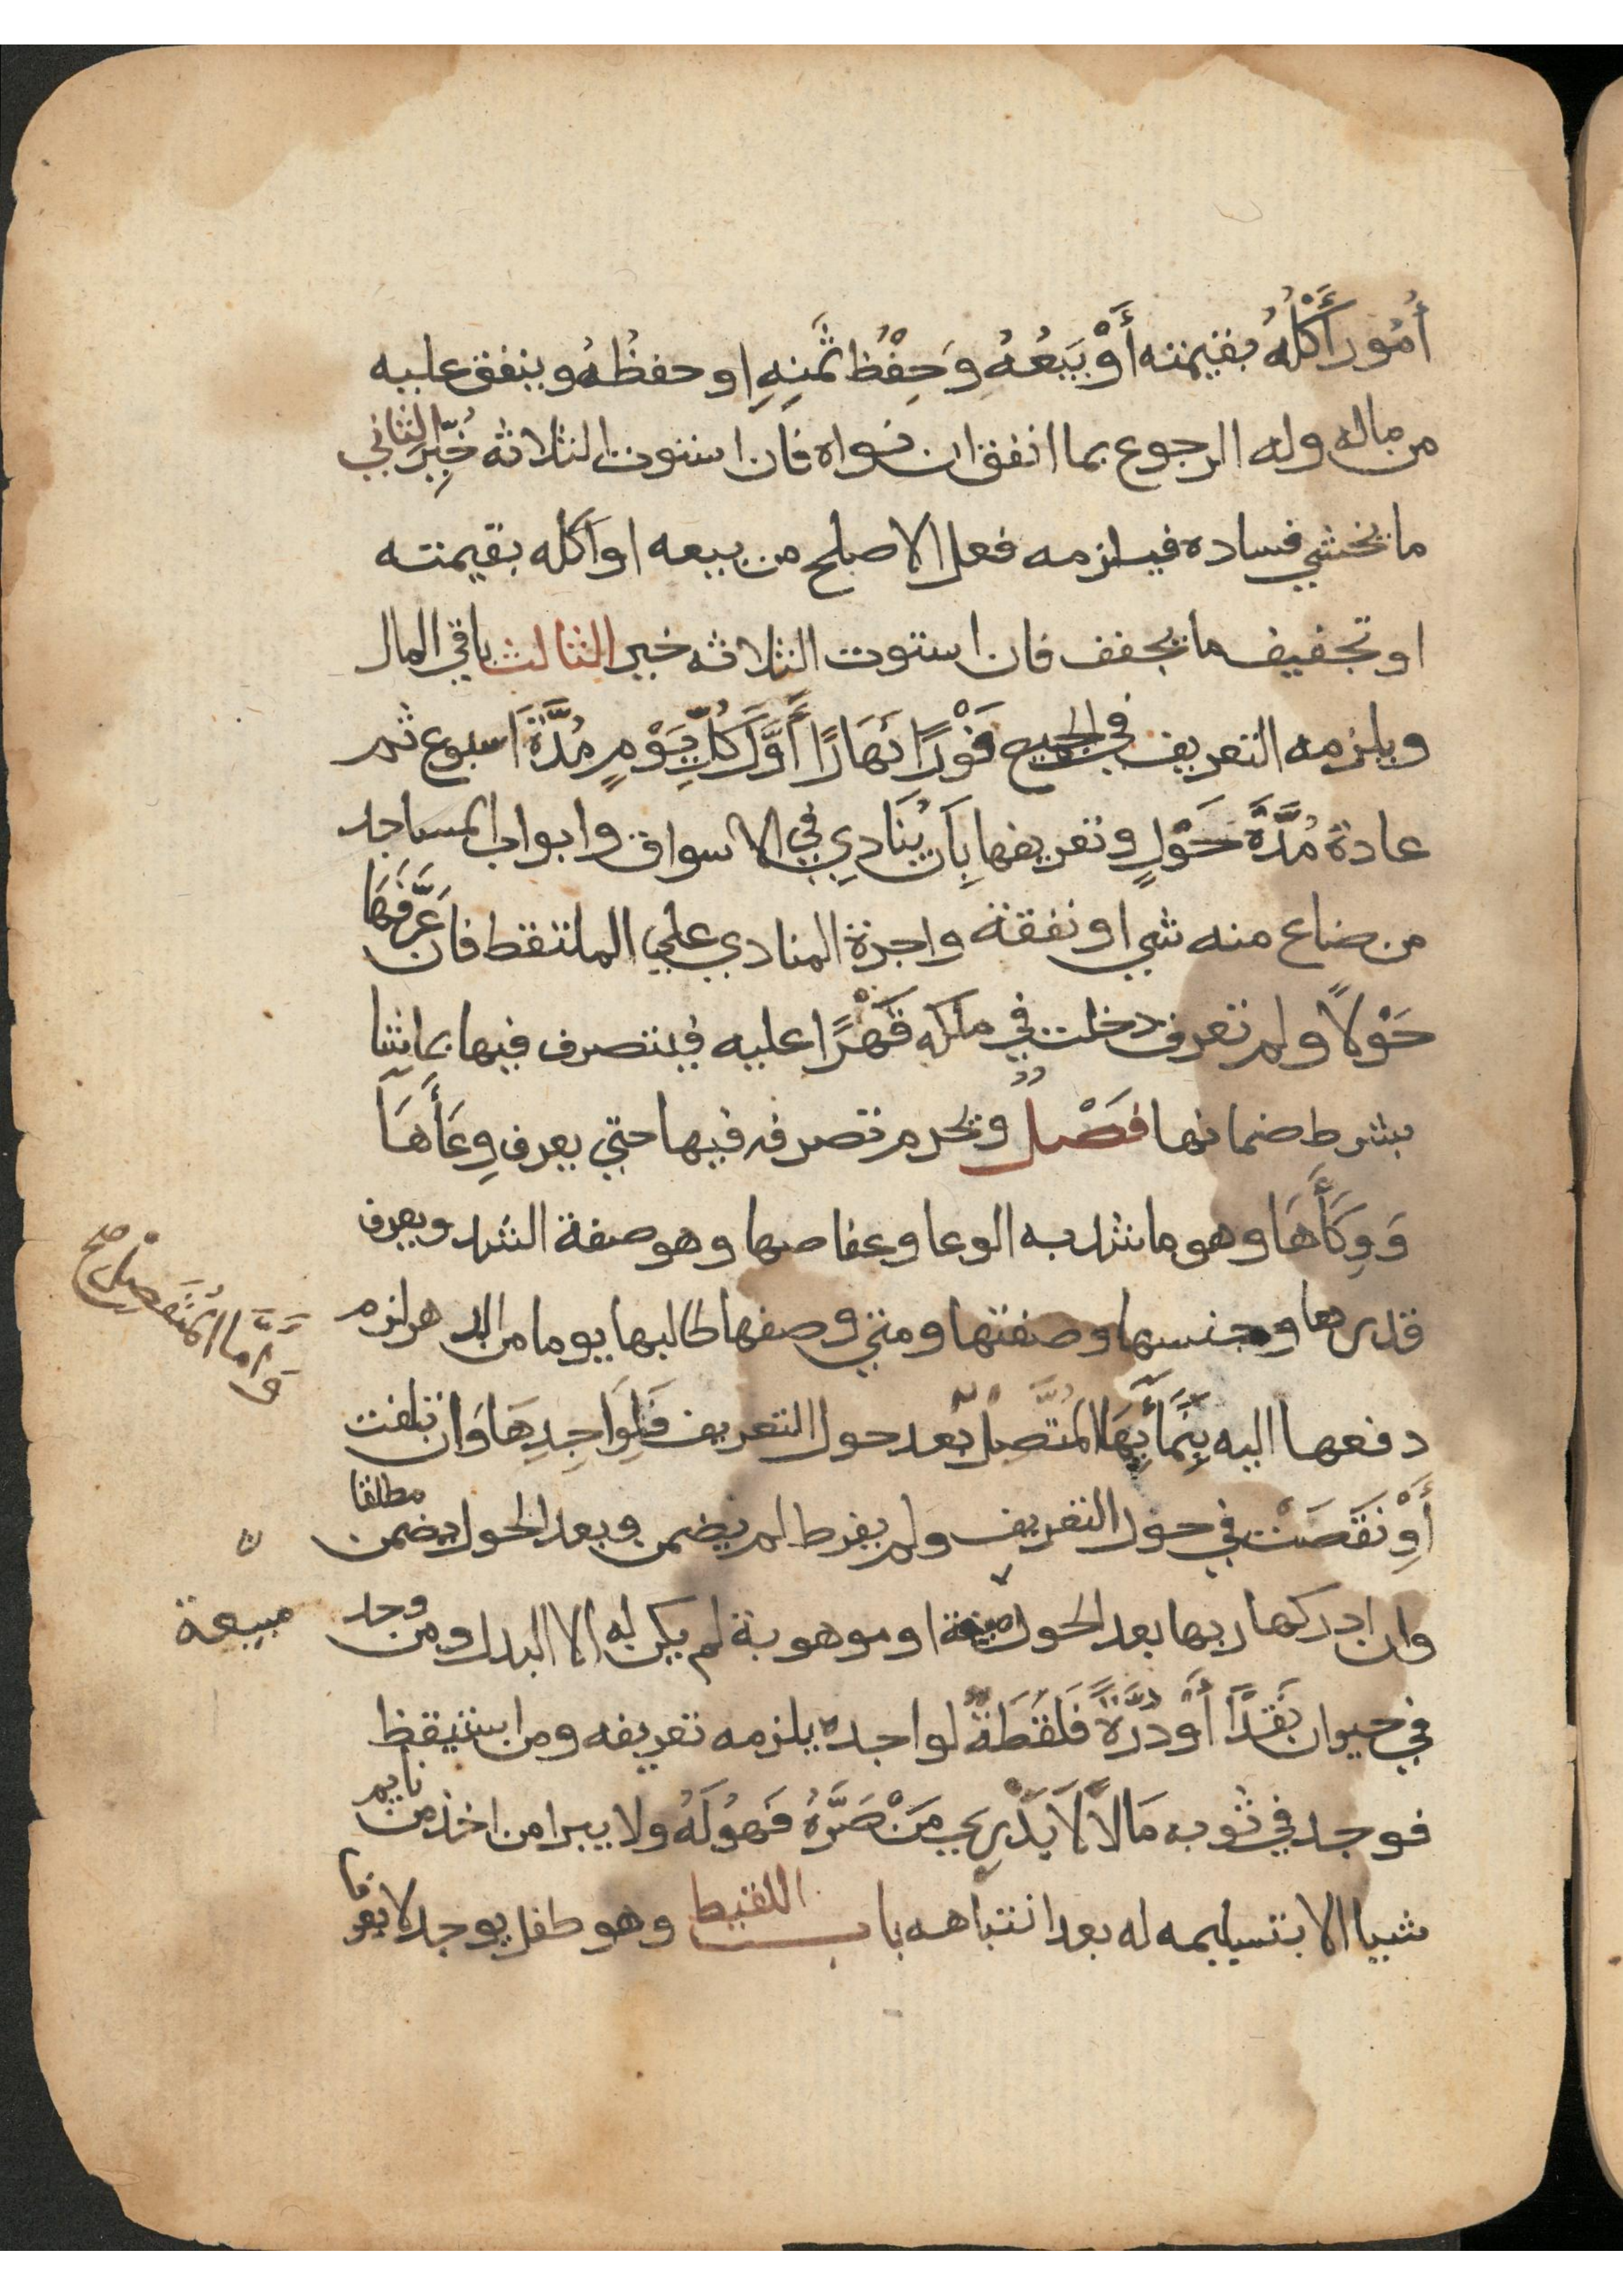 أُمُور أَكْلُهُ بقيمته أَوْ بَيْعُهُ وَحِفْظُ ثَمَنِهِ او حفظُهُ وينفق عليه
من ماله وله الرجوع بما انفق ان نواه فان استوت الثلاثه خُيِّر الثاني
ما يخشي فساده فيلزمه فعل الاصلح من بيعه او اكله بقيمته
او تجفيف ما يجفف فان استوت الثلاثه خير الثالث باقي المال
ويلزمه التعريف في الجميع فَوْرًا نَهَارًا أَوَّلَ كُلِّ يَوْمٍ مُدَّةَ اسبوع ثم
عادة مُدَّةَ حَوْلٍ وتعريفها بِأَن يُنَادِي في الاسواق وابواب المساجد
من ضاع منه شي او نفقة واجرة المنادي علي الملتقط فان عَرَّفَهَا
حَوْلاً ولم تعرف دخلت في ملكه قَهْرًا عليه فيتصرف فيها بما شا
بشرط ضمانها فَصْلٌ وتحرم تصرفه فيها حتي يعرف وِعَأَهَا
وَوِكَأَهَا وهو ما شد به الوعا وعفاصها وهو صفة الشد ويعرف
قدرها وجنسها وصفتها ومتي وصفها طالبها يوما من الدهر لزم
دفعها اليه بِنَمَأَيِهَا المُتَّصِلْ بعد حول التعريف فَلِوَاجِدِهَا وَان تلفت
وَأَمَّا المُنْفَصِلْ صح
أَوْ نَقَصَتْ في حول التعريف ولم يفرط لم يضمن وبعد الحول يضمن مطلقا
وان ادركها ربها بعد الحول مبيعة او موهوبة لم يكن له الا البدل ومن وجد
مبيعة
في حيوان نَقْدًا أَوْ دُرَّةً فَلُقَطَةٌ لواجده يلزمه تعريفه ومن استيقظ
فوجد في ثوبه مَالاً لَا يَدْرِي مَنْ صَرَّهُ فَهُوَلَهُ ولا يبرا من اخذ من نايم
شييا الا بتسليمه له بعد انتباهه باب اللقيط وهو طفل يوجد لا يعرف